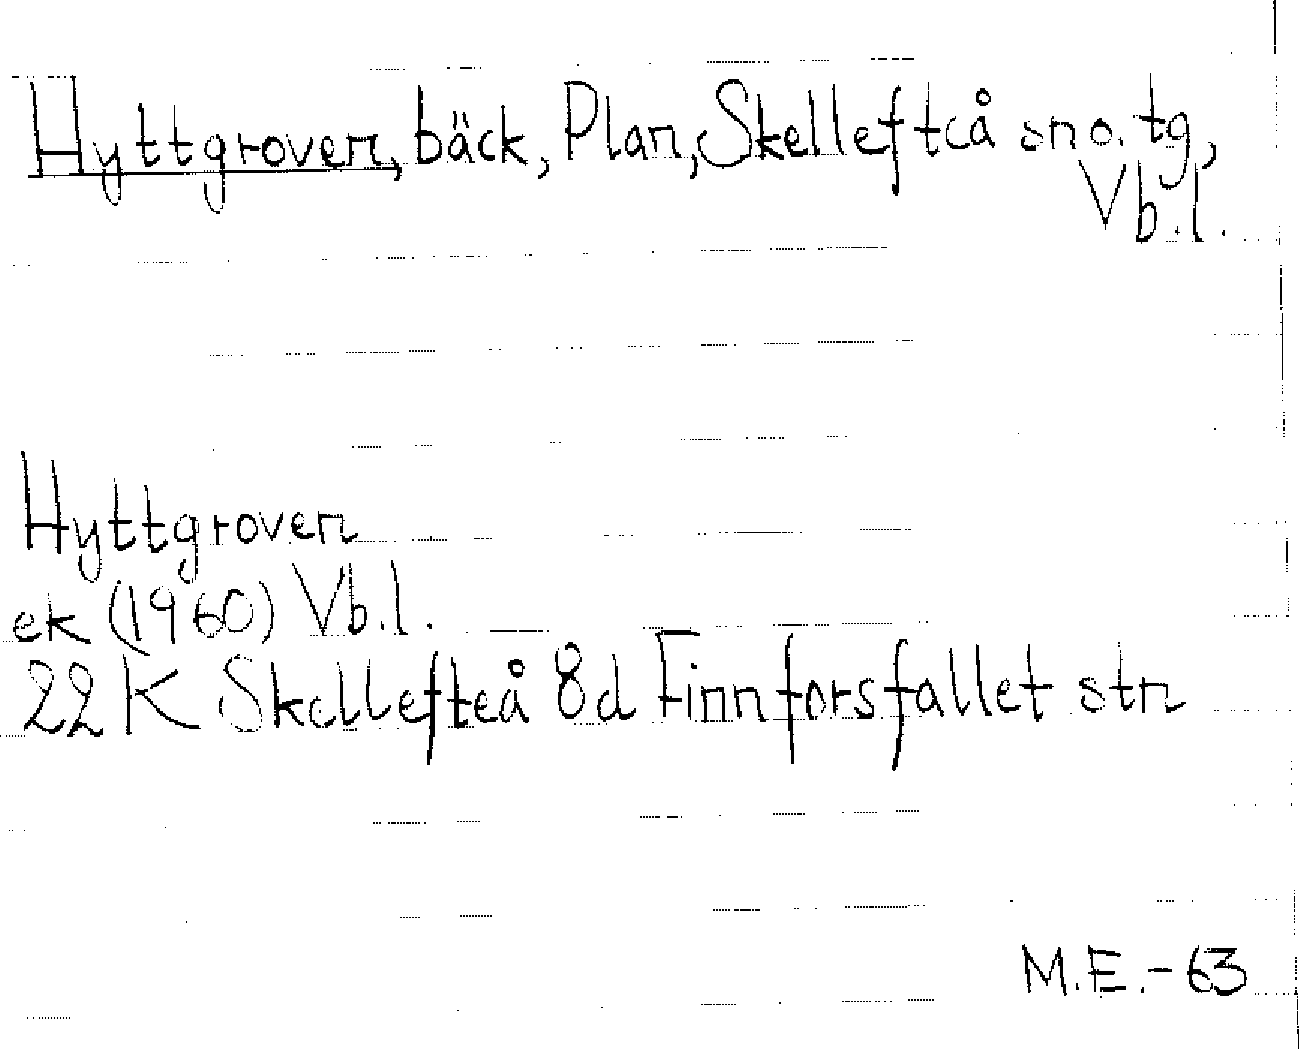 Hyttgroven, bäck, Plan, Skellefteå sno. tg,
Vb.l.
Hyttgroven
ek (1960) Vb.l.
22K Skellefteå 8d Finnforsfallet str
M.E.-63